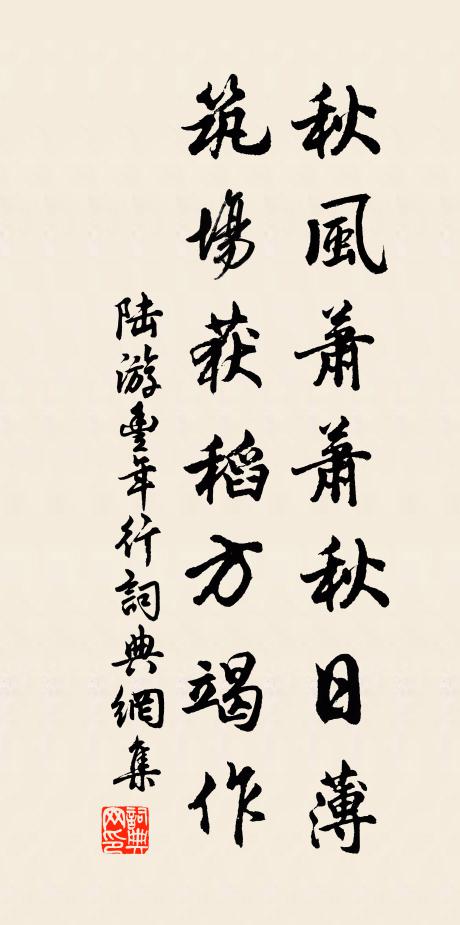 秋風蕭蕭秋日薄
筑場获稻方竭作
陸游豐年行詞典網集
詞典
网印